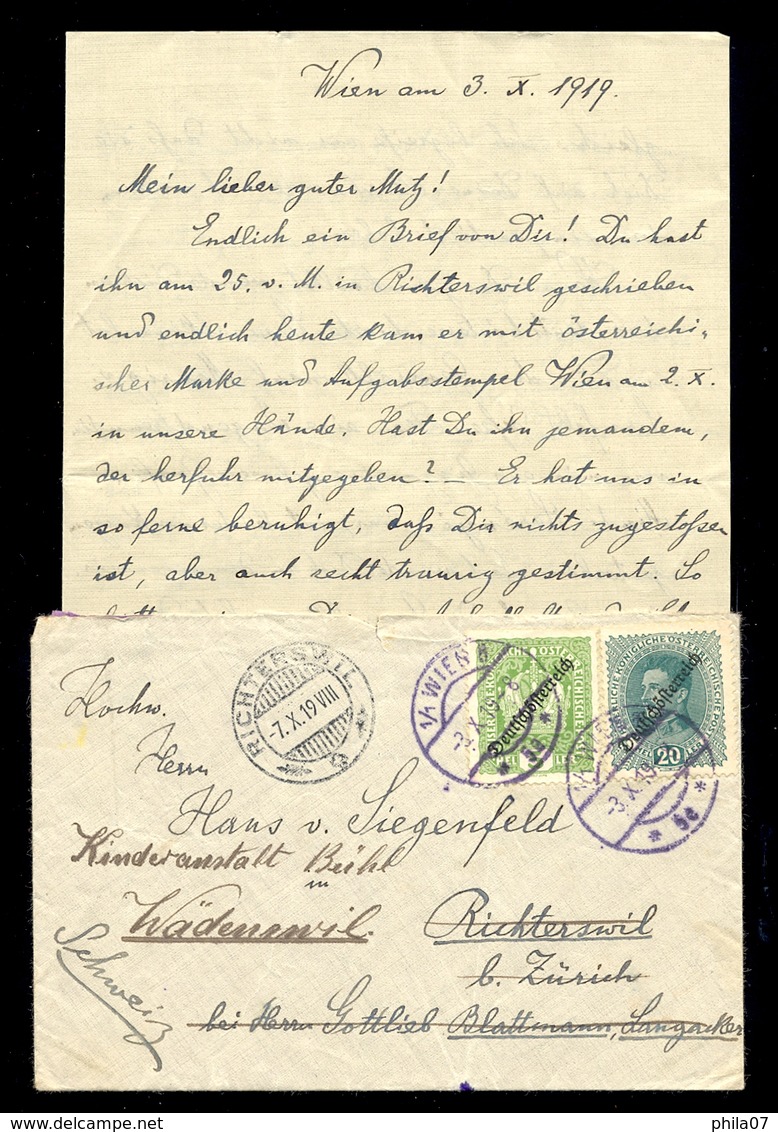 Wien am 3. X. 1919.
Mein lieber guter Mutz!
Endlich ein Brief von Dir! Du hast
ihn am 25. v. M. in Richterswil geschrieben
und endlich heute kam er mit österreichi-
scher Marke und Aufgabsstempel Wien am 2. X.
in unsere Hände. Hast Du ihn jemandem,
der herfuhr mitgegeben? – Er hat uns in
so ferne beruhigt, daß Dir nichts zugestoßen
ist, aber auch recht traurig gestimmt. So
RICHTERSWIL
-7.X.19 VIII
1/1 WIEN
3.X.19
Deutschösterreich
Deutschösterreich
20
1/1 WIEN
-3.X.19
* 6c *
Hochw.
Herrn
Hans v. Siegenfeld
Kinderanstalt Bühl
in
Wädenswil.
Richterswil
b. Zürich
Schweiz
bei Herrn Gottlieb Blattmann, Langacker
phila07